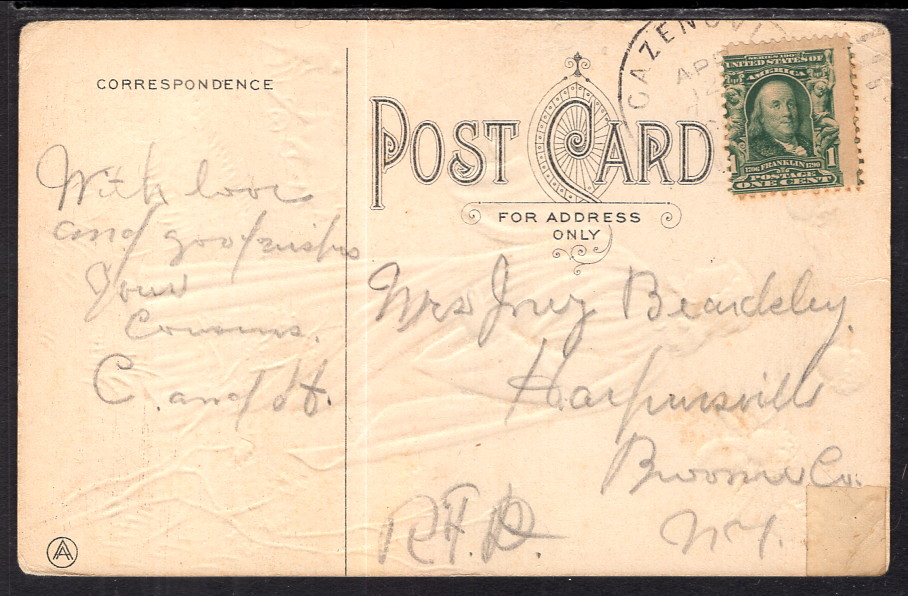 CORRESPONDENCE
POST CARD
FOR ADDRESS
ONLY
CAZENOVI
AP
SERIES 1902
UNITED STATES OF
AMERICA
1706 FRANKLIN 1790
1 POSTAGE 1
ONE CENT
With love
and good wishes
Your
Cousins.
C. and H.
Mrs Beardsley
Harpursville
Broome Co.
N.Y.
R.F.D.
A